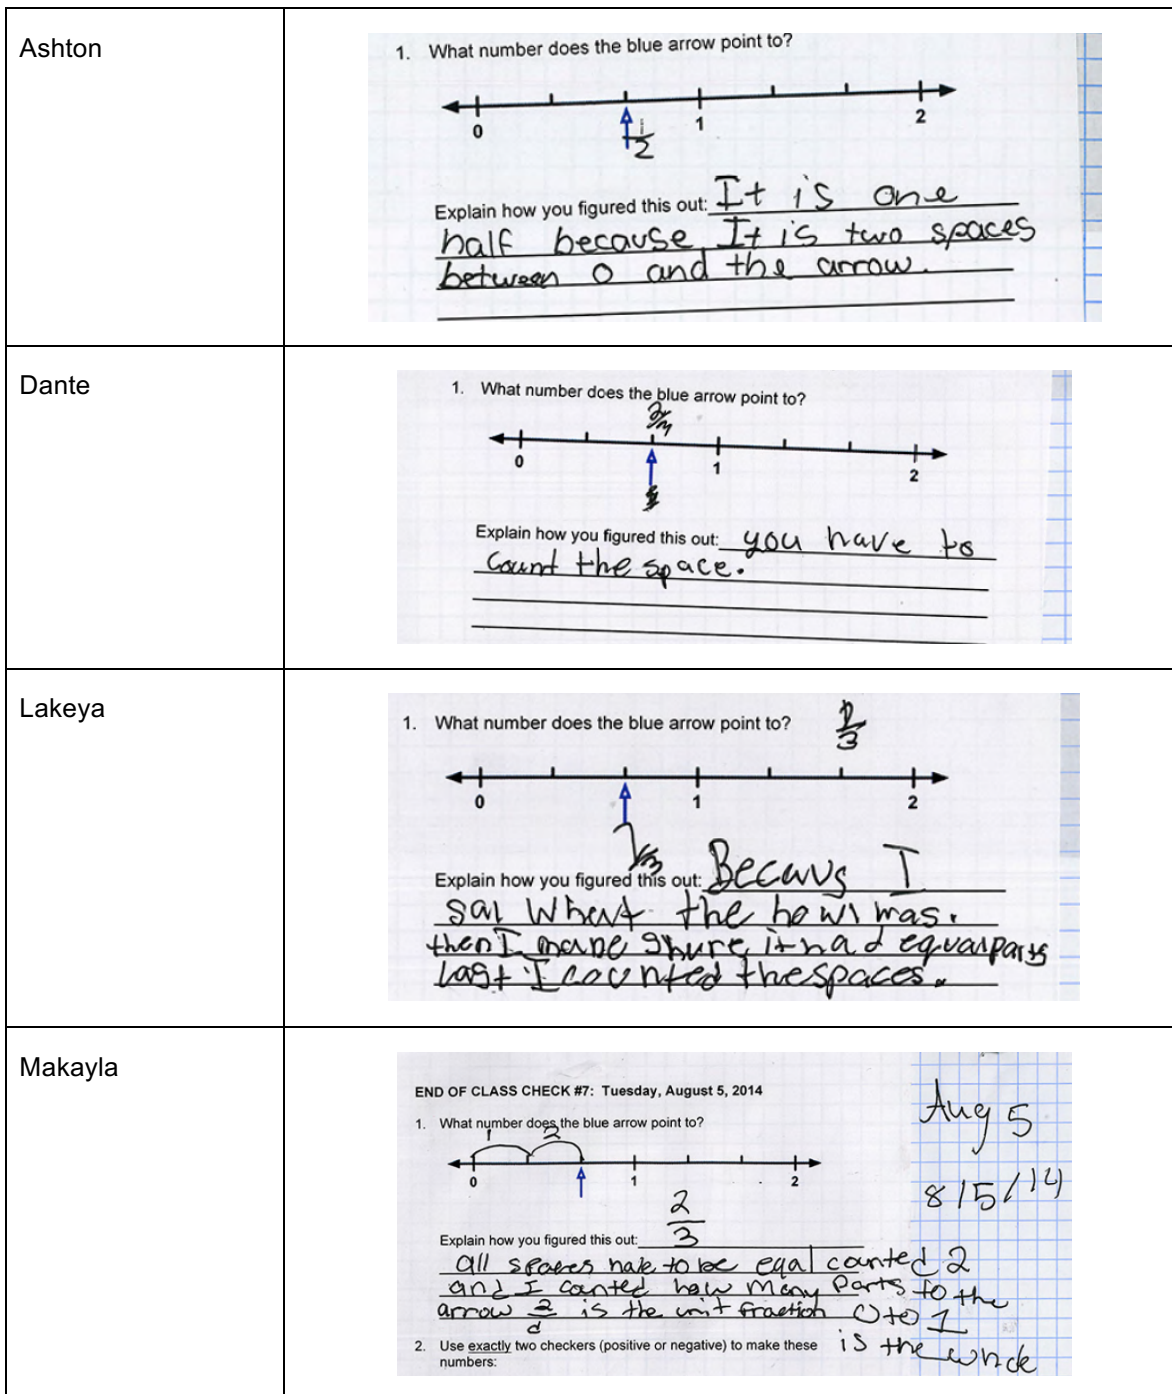 Ashton
1. What number does the blue arrow point to?
0 1 2
1/2
Explain how you figured this out: It is one
half because It is two spaces
between 0 and the arrow.
Dante
1. What number does the blue arrow point to?
0 1 2
Explain how you figured this out: you have to
count the space.
Lakeya
1. What number does the blue arrow point to?
2/3
0 1 2
2/3
Explain how you figured this out: Becaus I
what the
then I made shure it had equal parts
last I counted the spaces.
Makayla
END OF CLASS CHECK #7: Tuesday, August 5, 2014
Aug 5
1. What number does the blue arrow point to?
1 2
0 1 2
8/5/14
2/3
Explain how you figured this out:
all spaces have to be eqal counted 2
and I counted how many parts to the
arrow is the unit fraction 0 to 1
is the whole
2. Use exactly two checkers (positive or negative) to make these
numbers: